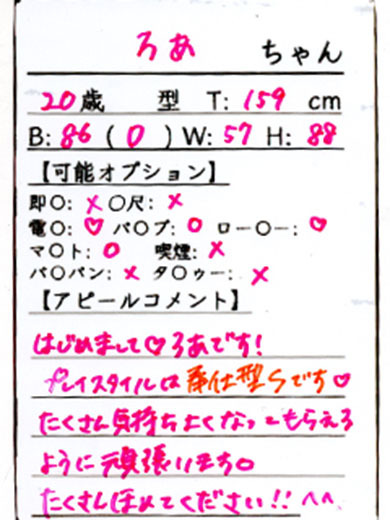 ろあ ちゃん
20歳 型 T: 159 cm
B: 86 ( O ) W: 57 H: 88
【可能オプション】
即〇: × 〇尺: ×
電〇: ♡ バ〇ブ: O ロー〇ー: ♡
マ〇ト: O 喫煙: ×
パ〇パン: × タ〇ゥー: ×
【アピールコメント】
はじめまして♡ろあです!
プレイスタイルは奉仕型Sです♡
たくさん気持ちよくなってもらえる
ように頑張ります。
たくさんほめてください!! ^^